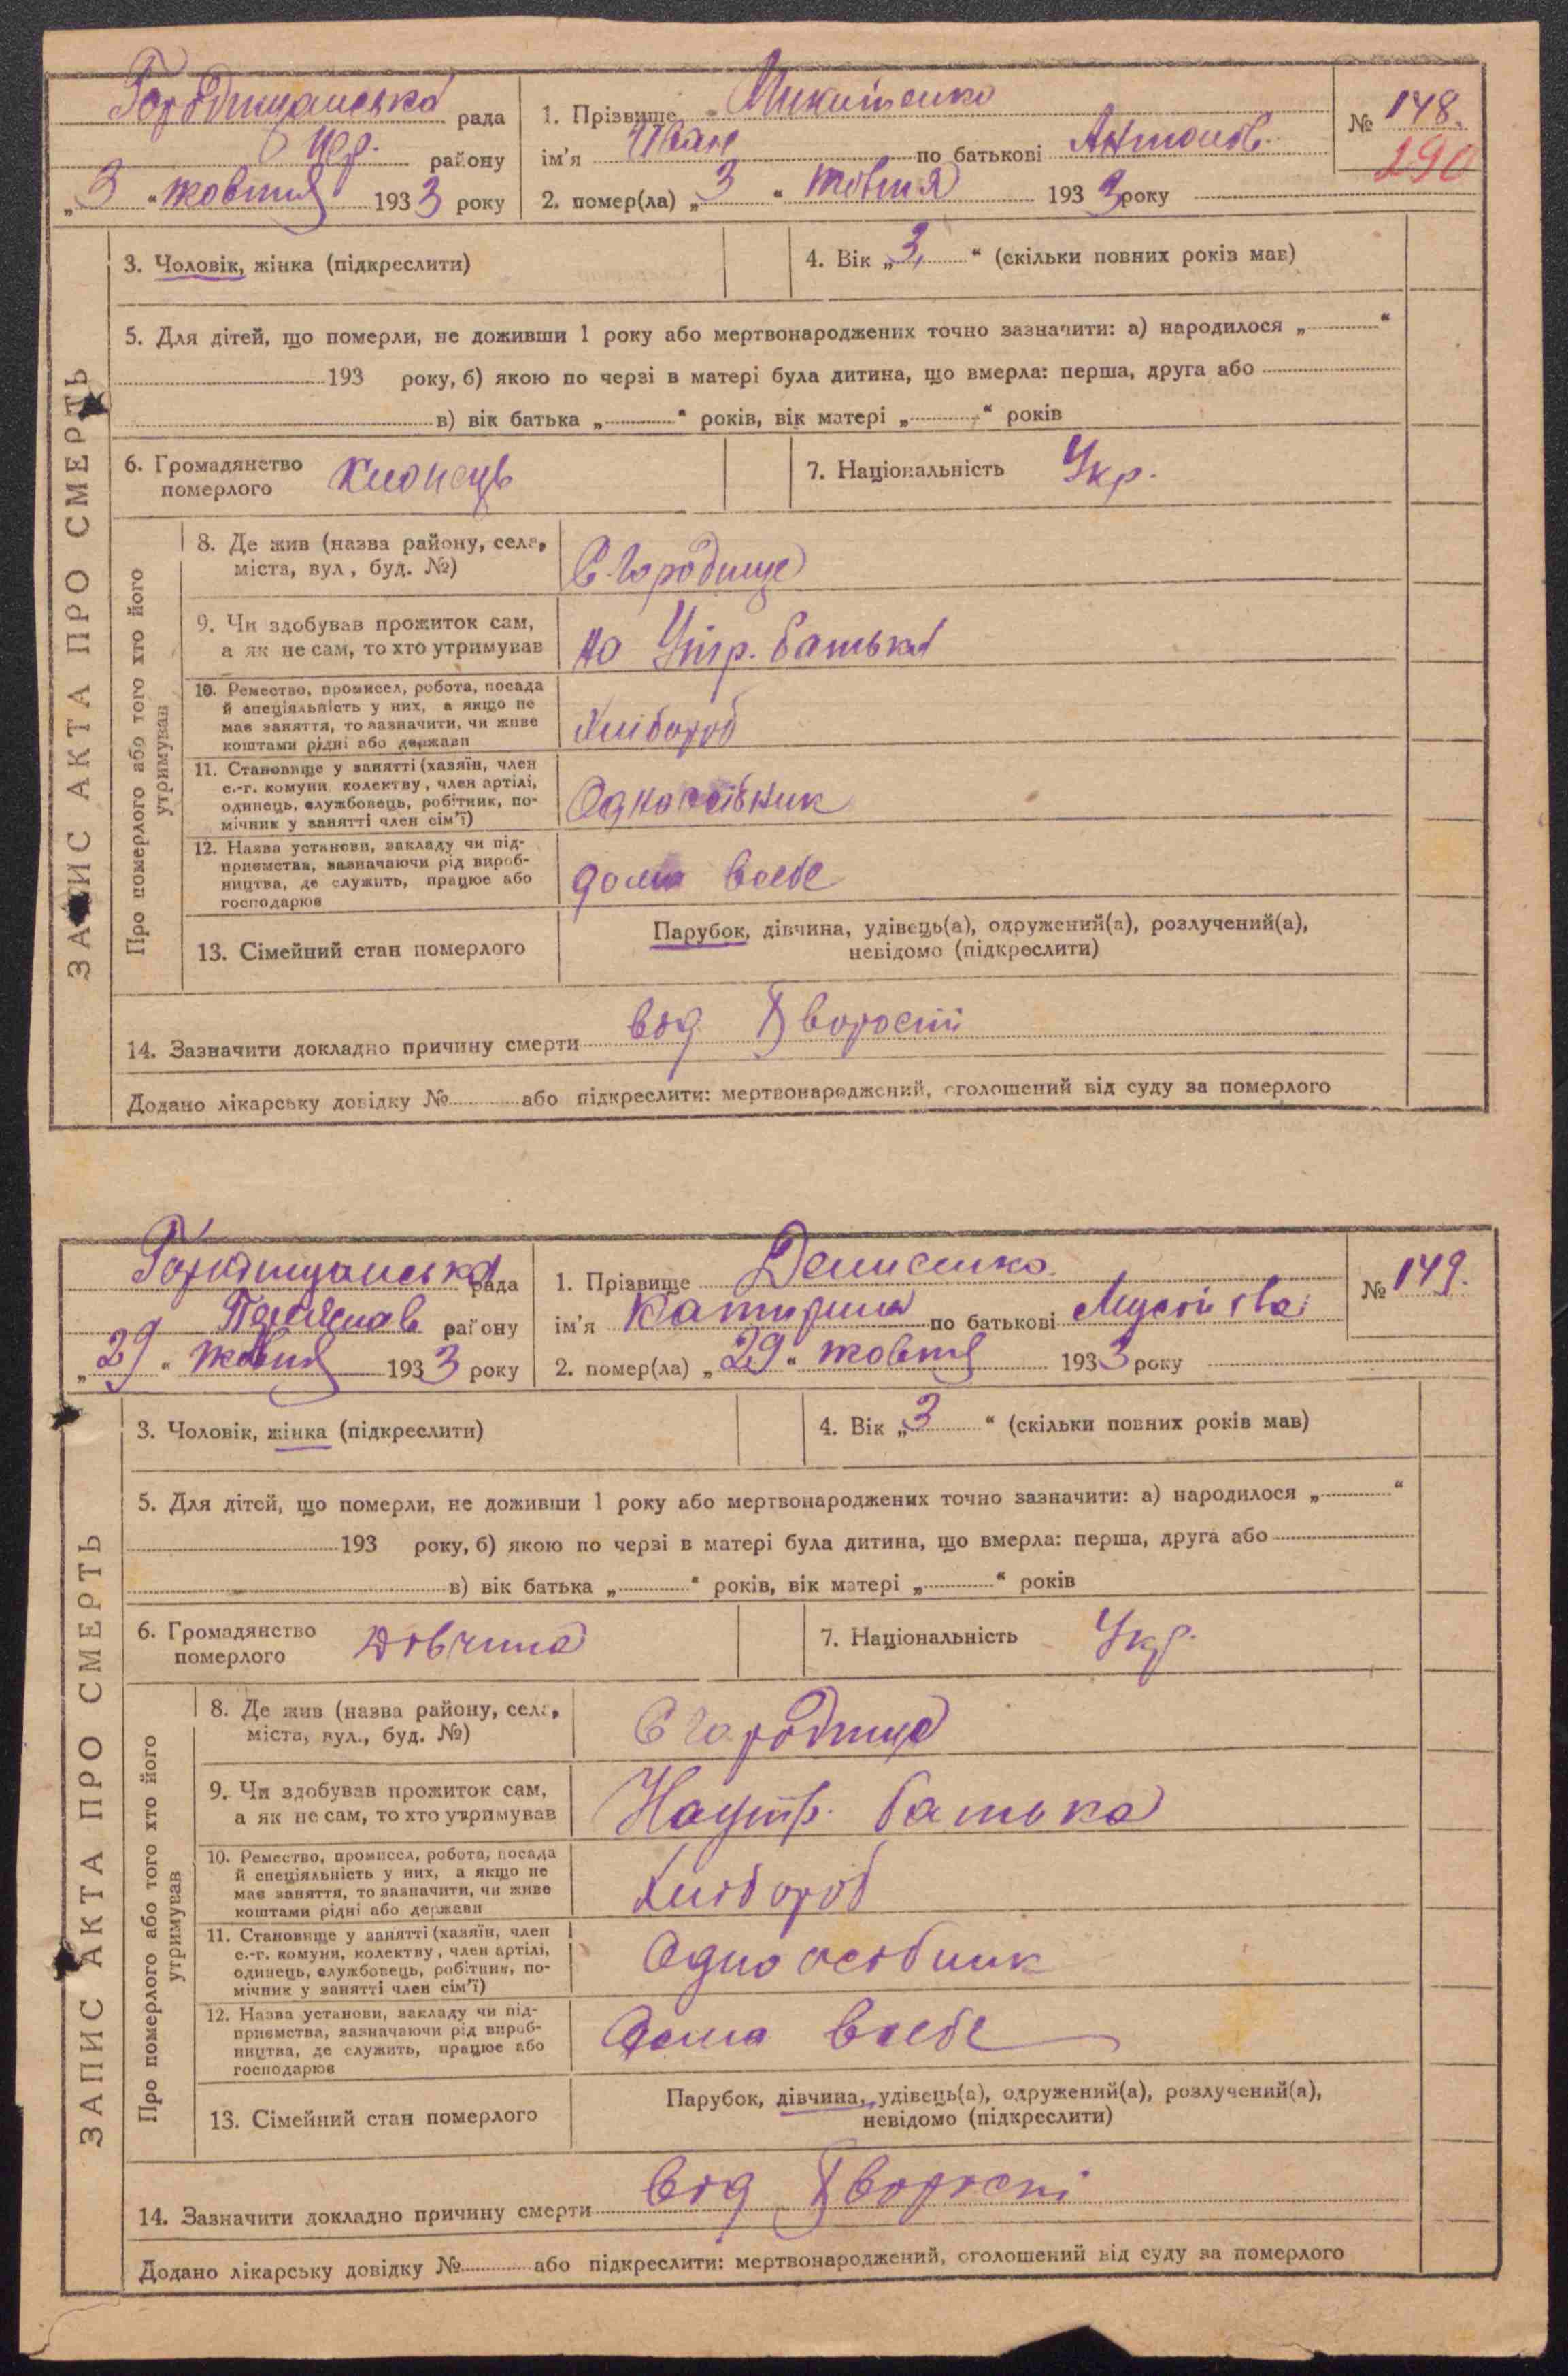 Городищанська рада
району
„3“ жовтня 1933 року
1. Прізвище Микитенко
ім'я Іван по батькові Антонов.
2. помер(ла) „3“ жовтня 1933 року
№ 148.
290
ЗАПИС АКТА ПРО СМЕРТЬ
3. Чоловік, жінка (підкреслити)
4. Вік „3“ (скільки повних років мав)
5. Для дітей, що померли, не доживши 1 року або мертвонароджених точно зазначити: а) народилося „ “
193 року, б) якою по черзі в матері була дитина, що вмерла: перша, друга або
в) вік батька „ “ років, вік матері „ “ років
6. Громадянство
померлого
Хлопець
7. Національність Укр.
Про померлого або того хто його
утримував
8. Де жив (назва району, села,
міста, вул., буд. №)
С. Городище
9. Чи здобував прожиток сам,
а як не сам, то хто утримував
На Утр. батька
10. Ремество, промисел, робота, посада
й спеціяльність у них, а якщо не
мав заняття, то зазначити, чи живе
коштами рідні або держави
Хлібороб
11. Становище у занятті (хазяїн, член
с.-г. комуни колектву, член артілі,
одинець, службовець, робітник, по-
мічник у занятті член сім'ї)
12. Назва установи, закладу чи під-
приємства, зазначаючи рід вироб-
ництва, де служить, працює або
господарює
дома всебе
13. Сімейний стан померлого
Парубок, дівчина, удівець(а), одружений(а), розлучений(а),
невідомо (підкреслити)
14. Зазначити докладно причину смерти від Хворости
Додано лікарську довідку № або підкреслити: мертвонароджений, оголошений від суду за померлого
Городищанська рада
району
„29“ жовтня 1933 року
1. Прізвище Денисенко
ім'я Катирина по батькові
2. помер(ла) „29“ жовтня 1933 року
№ 149.
ЗАПИС АКТА ПРО СМЕРТЬ
3. Чоловік, жінка (підкреслити)
4. Вік „3“ (скільки повних років мав)
5. Для дітей, що померли, не доживши 1 року або мертвонароджених точно зазначити: а) народилося „ “
193 року, б) якою по черзі в матері була дитина, що вмерла: перша, друга або
в) вік батька „ “ років, вік матері „ “ років
6. Громадянство
померлого
Дівчина
7. Національність Укр.
Про померлого або того хто його
утримував
8. Де жив (назва району, села,
міста, вул., буд. №)
С Городище
9. Чи здобував прожиток сам,
а як не сам, то хто утримував
Наутр. батька
10. Ремество, промисел, робота, посада
й спеціяльність у них, а якщо не
мав заняття, то зазначити, чи живе
коштами рідні або держави
Хлібороб
11. Становище у занятті (хазяїн, член
с.-г. комуни, колектву, член артілі,
одинець, службовець, робітник, по-
мічник у занятті член сім'ї)
Одноосібник
12. Назва установи, закладу чи під-
приємства, зазначаючи рід вироб-
ництва, де служить, працює або
господарює
Дома всебе
13. Сімейний стан померлого
Парубок, дівчина, удівець(а), одружений(а), розлучений(а),
невідомо (підкреслити)
14. Зазначити докладно причину смерти від Хворости
Додано лікарську довідку № або підкреслити: мертвонароджений, оголошений від суду за померлого